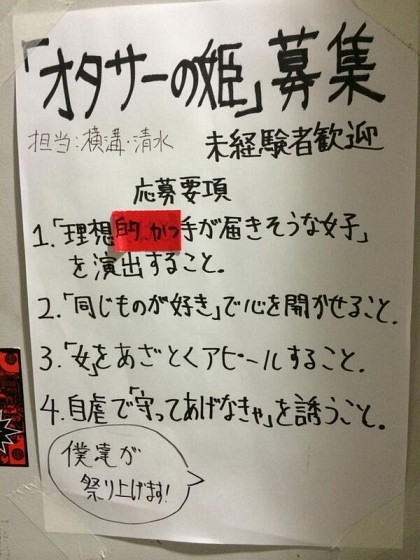 「オタサーの姫」募集
担当:横溝・清水
未経験者歓迎
応募要項
1.「理想的かつ手が届きそうな女子」
を演出すること。
2.「同じものが好き」で心を開かせること.
3.「女」をあざとくアピールすること.
4.自虐で「守ってあげなきゃ」を誘うこと。
僕達が
祭り上げます!